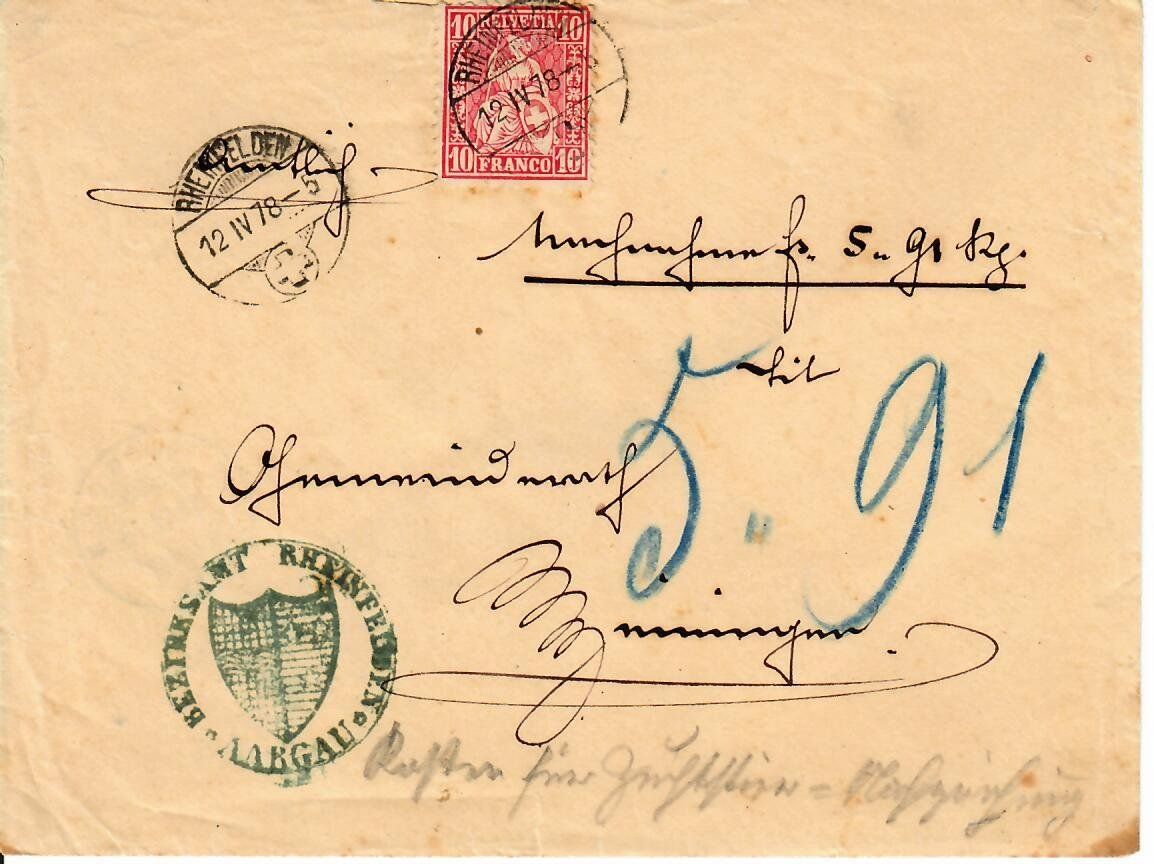 10 HELVETIA 10
10 FRANCO 10
RHEINFELDEN
12 IV 78
RHEINFELDEN
12 IV 78 – 5
Amtlich
Nachnahme fr. 5„ 91 Rp.
Tit
5„ 91
Gemeinderath
Zeiningen
BEZIRKSAMT RHEINFELDEN
AARGAU
Kosten für Zuchtstier =